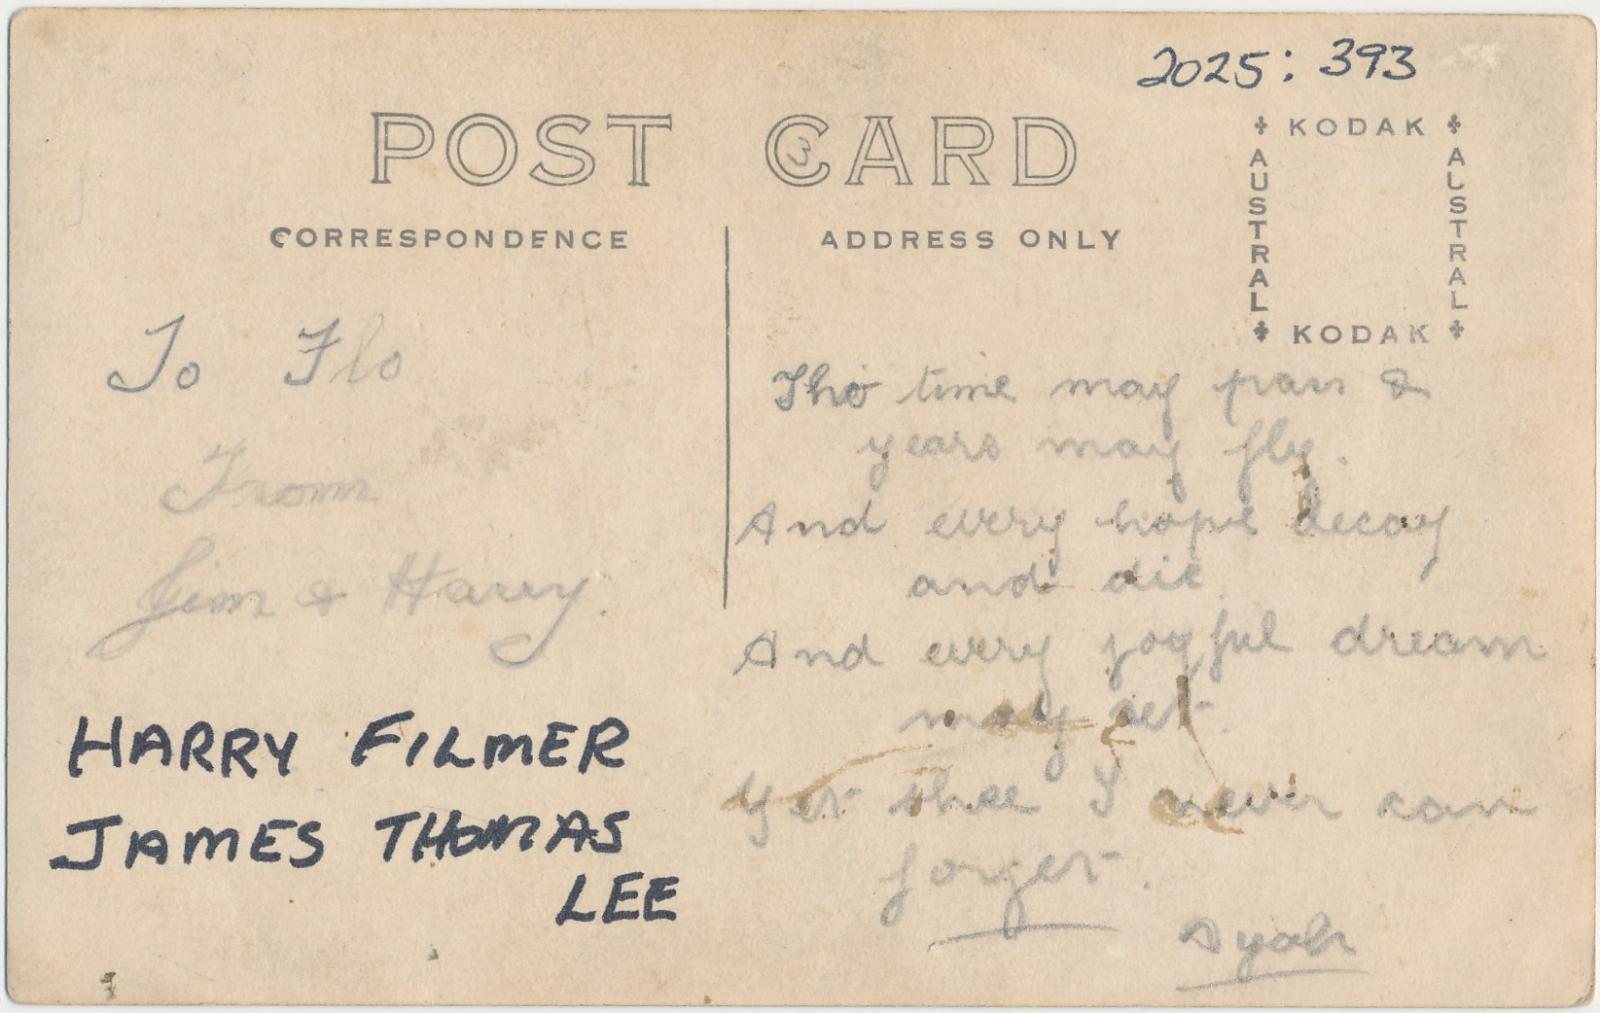 2025: 393
POST CARD
3
CORRESPONDENCE
ADDRESS ONLY
KODAK
AUSTRAL
AUSTRAL
KODAK
To Flo
From
Jim & Harry.
HARRY FILMER
JAMES THOMAS
LEE
Tho time may pass &
years may fly.
And every hope decay
and die.
And every joyful dream
may set.
Yet thee I never can
forget.